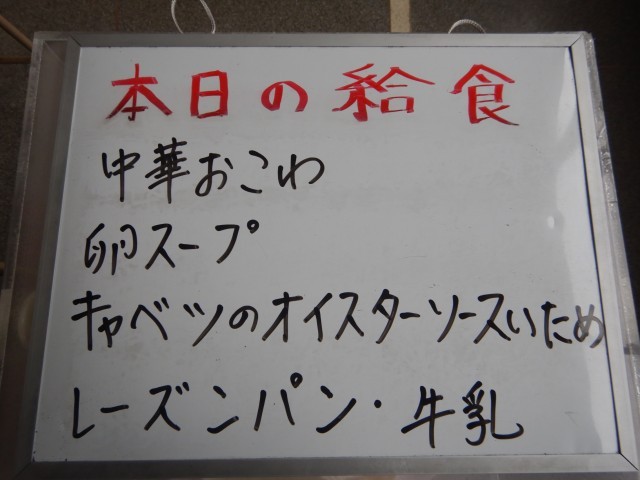 本日の給食
中華おこわ
卵スープ
キャベツのオイスターソースいため
レーズンパン・牛乳